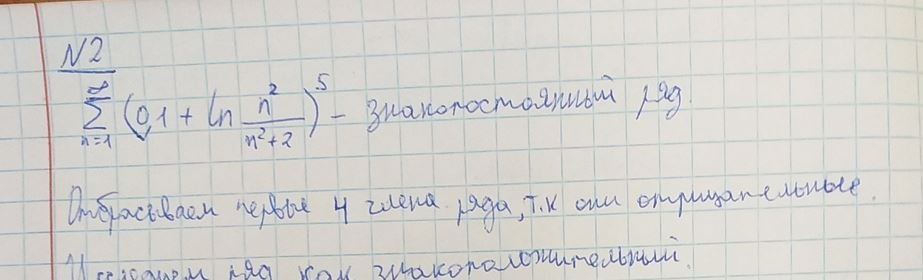 N2
∞ Σ n=1 (0,1 + ln n²/(n²+2))⁵ - знакопостоянный ряд.
Отбрасываем первые 4 члена ряда, т.к они отрицательные.
Исследуем ряд как знакоположительный.